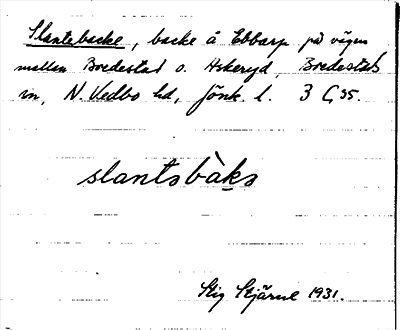 Slantebacke, backe å Ebbarp på vägen
mellan Bredestad o. Askeryd, Bredestads
sn, N. Vedbo hd, Jönk. l. 3 Ç 35.
slantsbàks
Stig Stjärne 1931.